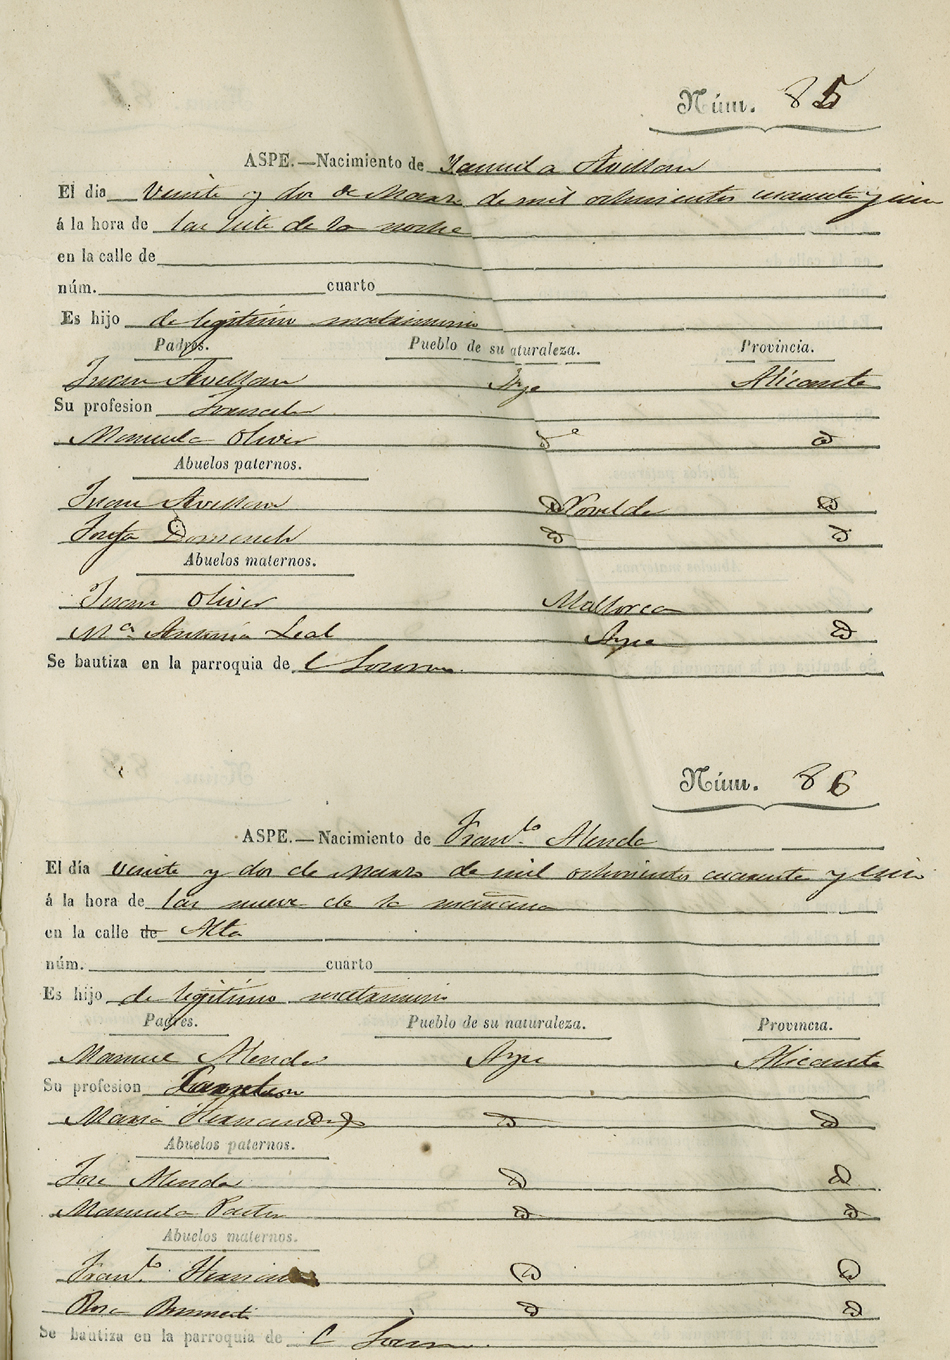 Núm. 85
ASPE.—Nacimiento de Manuela Avellan
El dia veinte y dos de Marzo de mil ochocientos cuarenta y uno
á la hora de las siete de la noche
en la calle de
núm. cuarto
Es hijo de legitimo matrimonio
Padres. Pueblo de su naturaleza. Provincia.
Juan Avellan Aspe Alicante
Su profesion
Manuela Oliver d
Abuelos paternos.
Juan Avellan Novelda
Josefa Domenech
Abuelos maternos.
Juan Oliver Mallorca
Mª Antonia Leal Aspe
Se bautiza en la parroquia de
Núm. 86
ASPE.—Nacimiento de Franco Alenda
El día veinte y dos de Marzo de mil ochocientos cuarenta y uno
á la hora de las nueve de la mañana
en la calle de Alta
núm. cuarto
Es hijo de legitimo matrimonio
Padres. Pueblo de su naturaleza. Provincia.
Manuel Alenda Aspe Alicante
Su profesion
Maria Hernandez
Abuelos paternos.
Jose Alenda
Manuela Pastor
Abuelos maternos.
Franco
Rosa
Se bautiza en la parroquia de